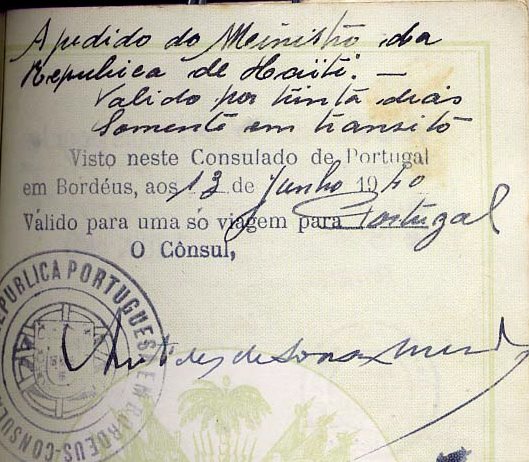 A pedido do Ministro da
Republica de Haiti. —
Valido por trinta dias
Somente em transito
Visto neste Consulado de Portugal
em Bordéus, aos 13 de Junho 1940
Válido para uma só viagem para Portugal
O Cônsul,
REPUBLICA PORTUGUESA EM BORDEUS-CONSULADO